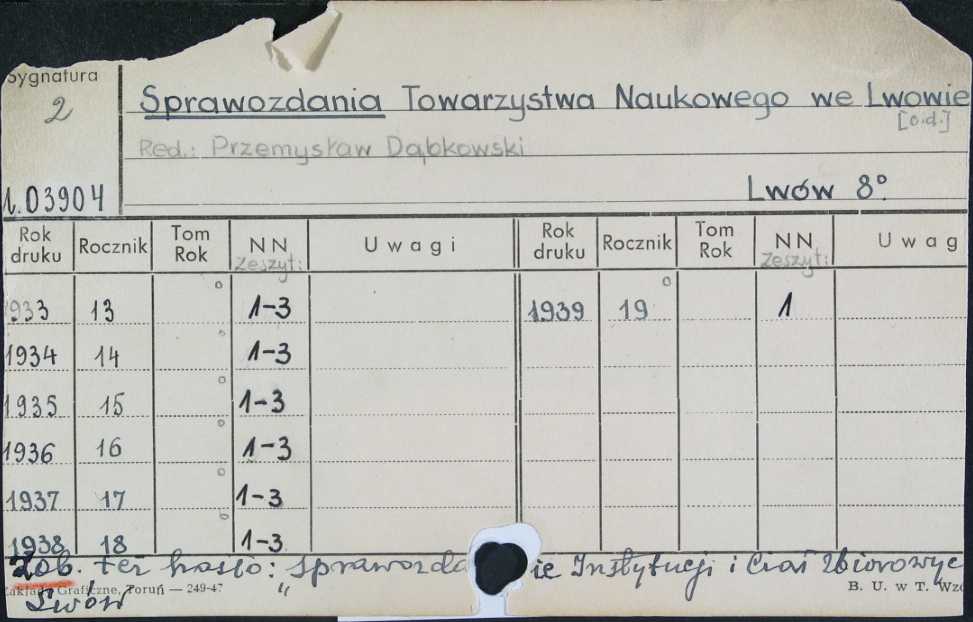 Sygnatura
2
Sprawozdania Towarzystwa Naukowego we Lwowie
[o.d.]
Red.: Przemysław Dąbkowski
1.03904
Lwów 8°.
Rok druku Rocznik Tom Rok NN Zeszyt: Uwagi Rok druku Rocznik Tom Rok NN Zeszyt: Uwag
933 13 1-3 1939 19 1
1934 14 1-3
1935 15 1-3
1936 16 1-3
1937 17 1-3
1938 18 1-3
Zob. też hasło: Sprawozda ie Instytucji i Ciał Zbiorowyc
Lwów "
akłady Graficzne, Toruń — 249-47
B. U. w T. Wzó